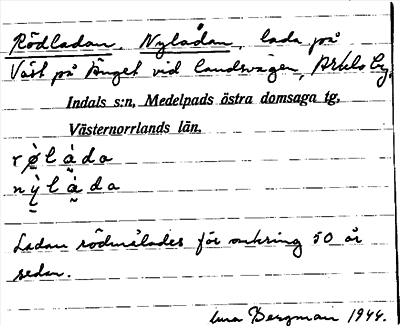 Rödladan, Nyladan, lada på
Väst på Änget vid landsvägen, Arkels by.
Indals s:n, Medelpads östra domsaga tg,
Västernorrlands län.
rø̀làda
nỳlàda
Ladan rödmålades för omkring 50 år
sedan.
Bergman 1944.